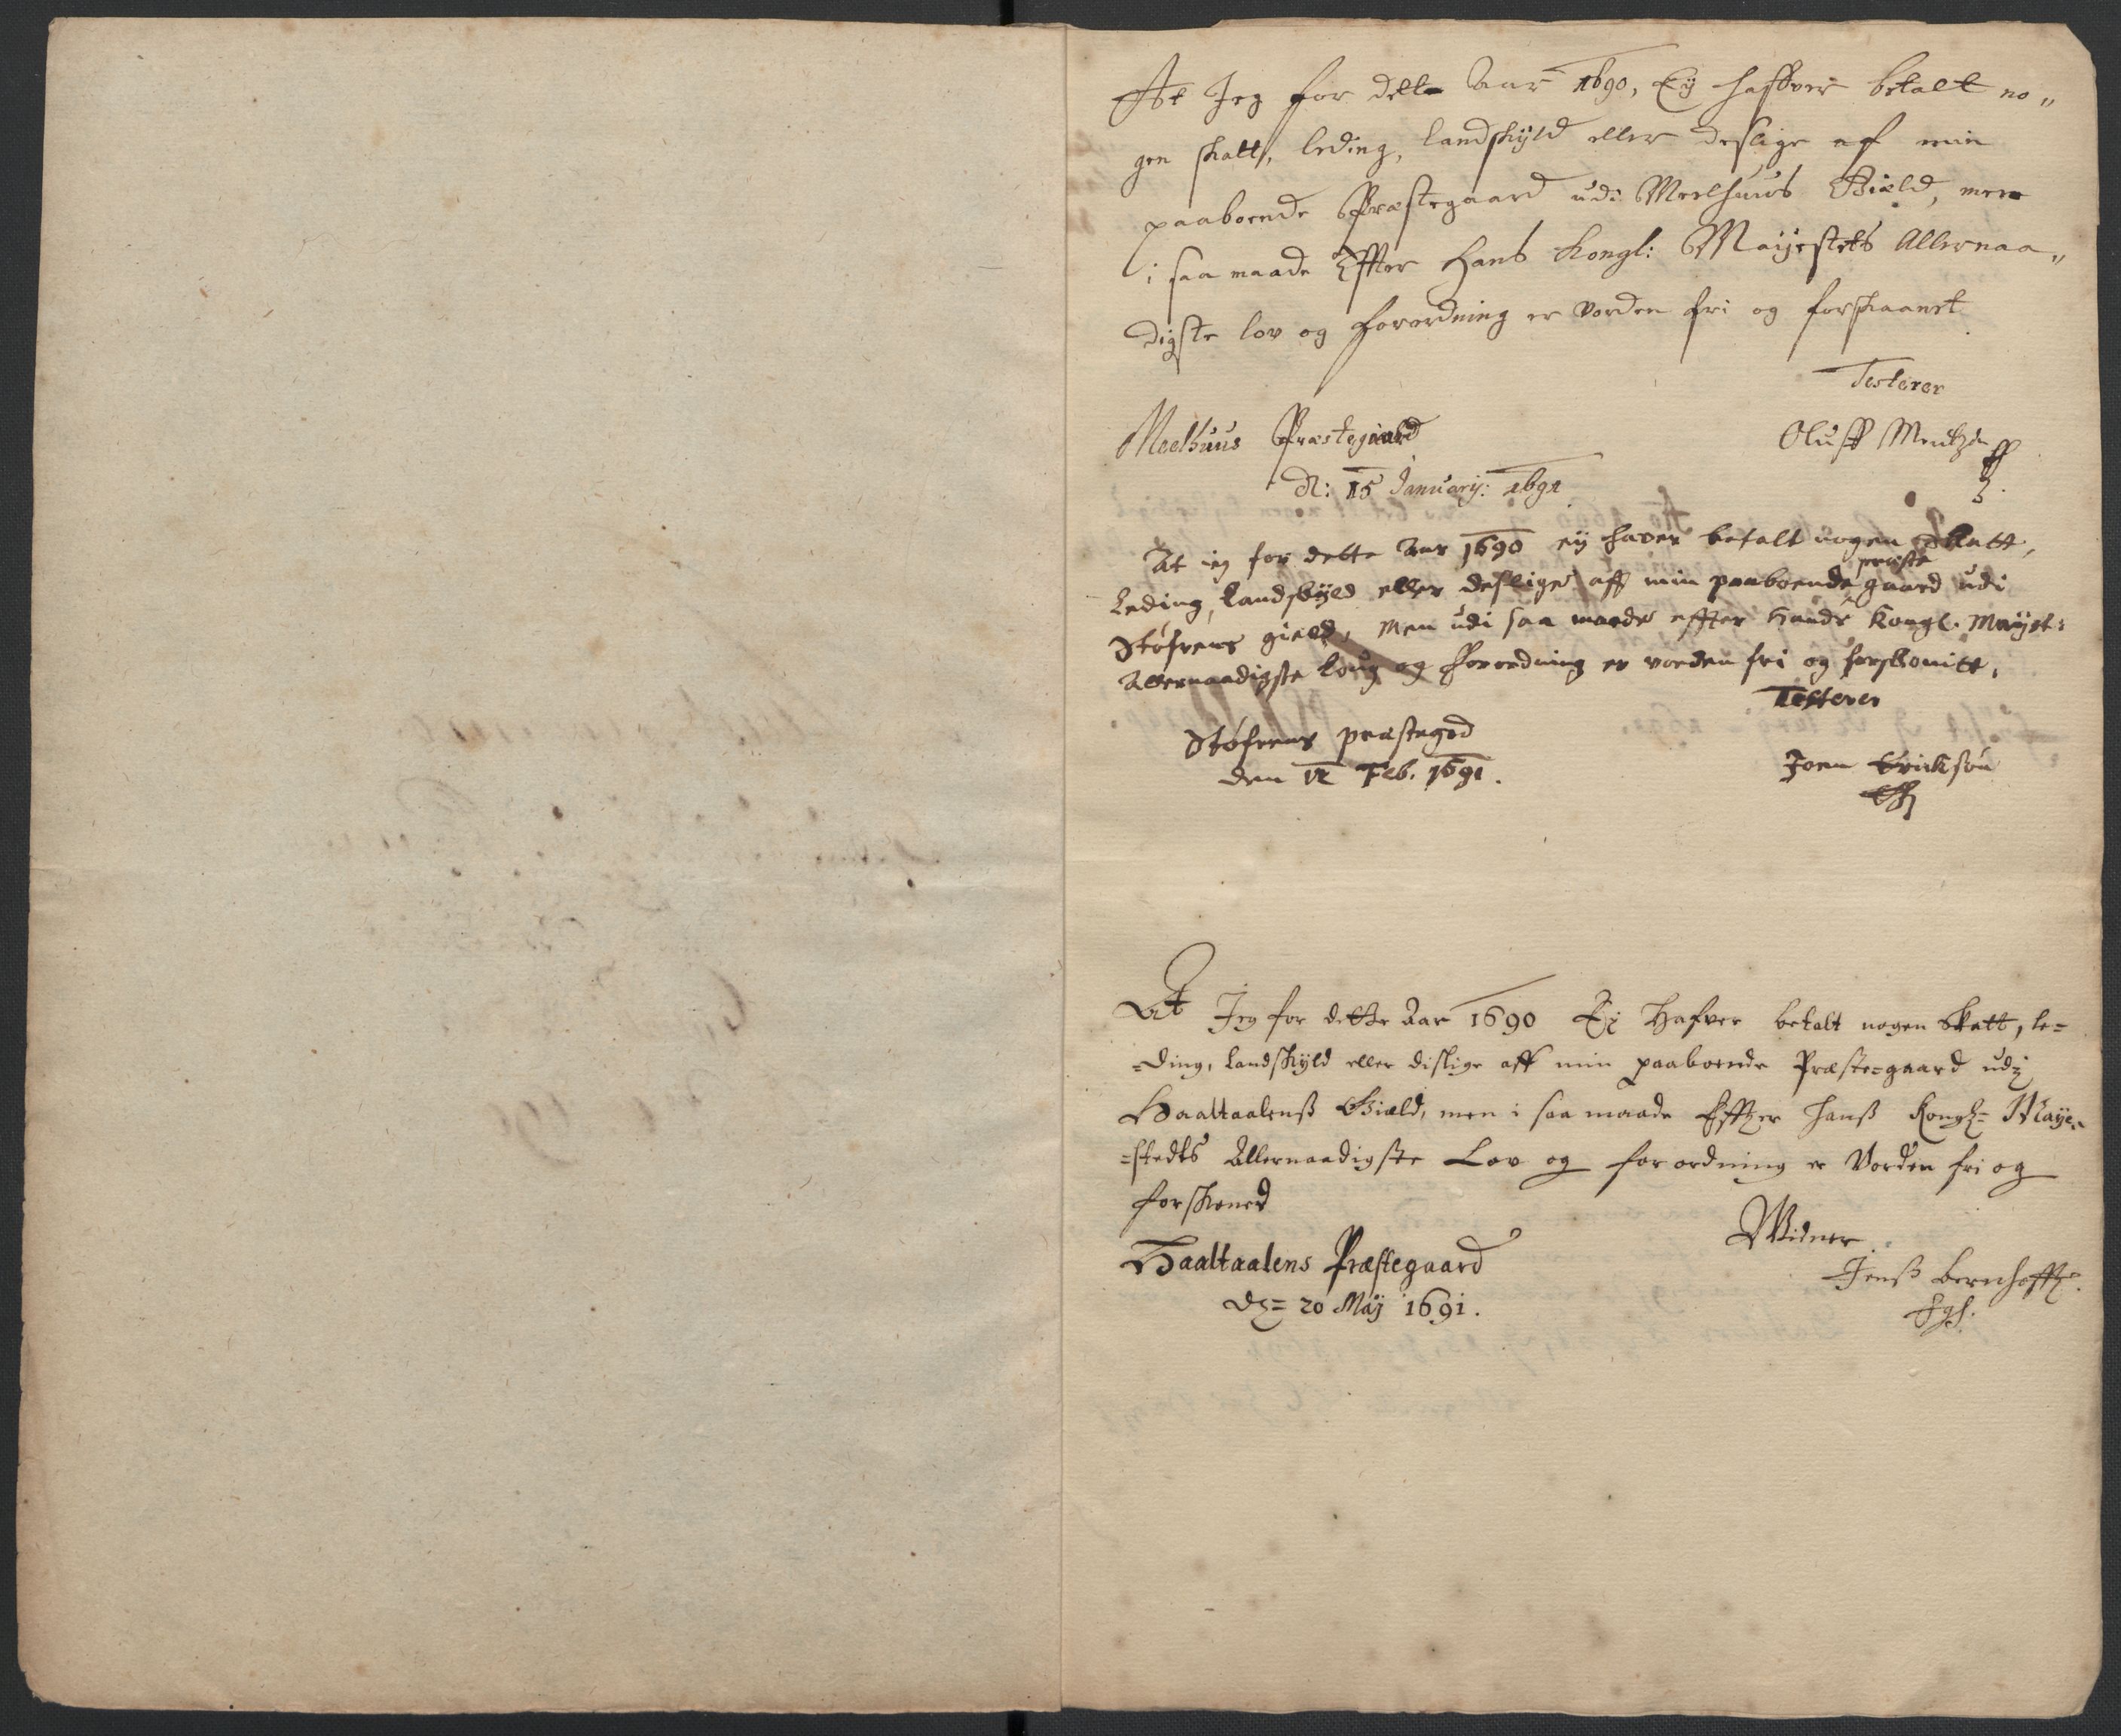 At Jeg for dette Aar 1690, Eÿ haffver betalt no„
gen skatt, leding, landskÿld eller deslige af min
paaboende Præstegaard udi Meelhuus Gield, men
i saa maade Effter Hans Kongl: Maÿestets Allernaa„
digste lov og forordning er vorden fri og forskaanet
Testerer
Meelhuus Præstegaard
Oluff Mentzen
d: 15 Januarÿ: 1691
At ieg for dette Aar 1690 eÿ haver betalt nogen Skatt,
præste
Leding, Landskÿld eller deslige aff min paaboende gaard udi
Støfrens gield, Men udi saa maade effter Hands Kongl. Maÿst:
Allernaadigste Loug og Forordning er vorden fri og forskonitt,
Testerer
Støfrens præstegrd
Joen Ericksøn
den 12 Feb. 1691.
At Jeg for dette Aar 1690 Ej Hafver betalt nogen Skatt, le=
=ding, Landskÿld eller dislige aff min paaboende Præste=gaard udj
Haaltaalenß Gield, men i saa maade Effter Hanß Kongl= Maÿe=
=stedts Allernaadigste Lov og forordning er Vorden fri og
forskoned
Widner
Haaltaalens Præstegaard
Jenß Bernhofft.
d= 20 Maÿ 1691.